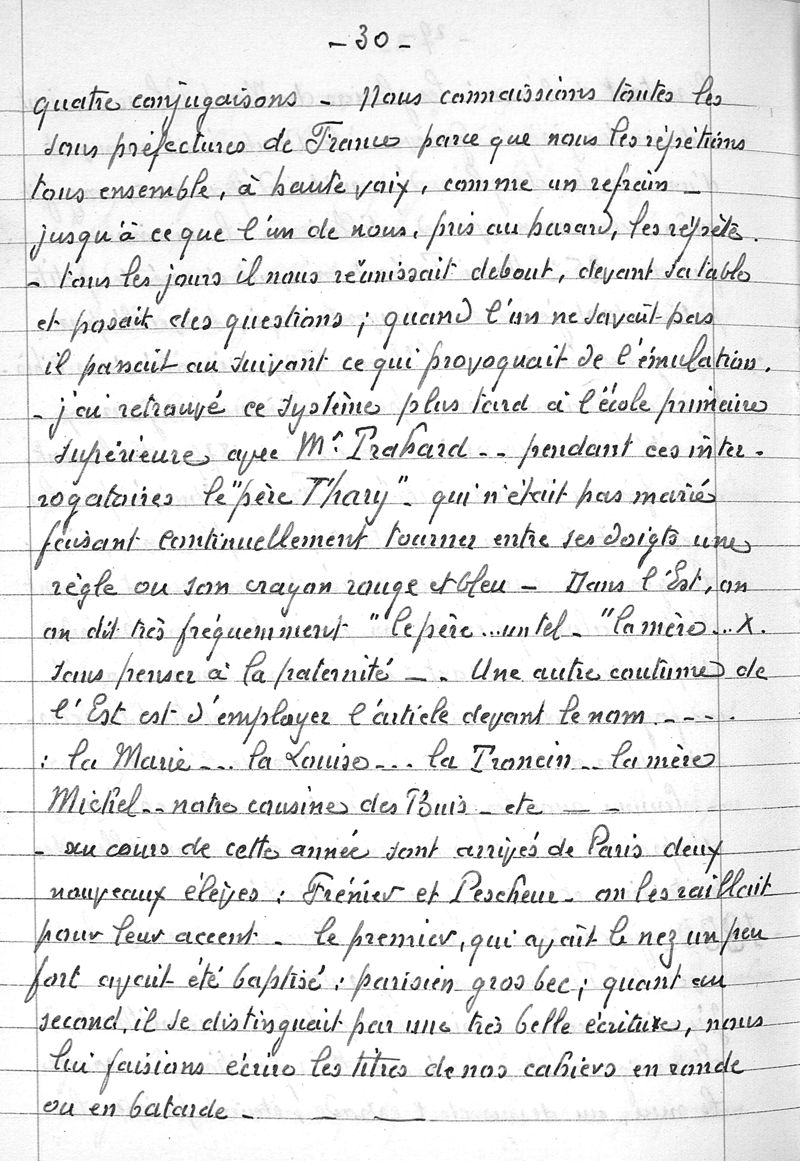 - 30 -
quatre conjugaisons - Nous connaissions toutes les
sous préfectures de France parce que nous les répétions
tous ensemble, à haute voix, comme un refrain -
jusqu'à ce que l'un de nous, pris au hasard, les répète.
- tous les jours il nous réunissait debout, devant sa table
et posait des questions ; quand l'un ne savait pas
il passait au suivant ce qui provoquait de l'émulation.
- j'ai retrouvé ce système plus tard à l'école primaire
supérieure avec Mr Prahard -- pendant ces inter-
rogatoires le "père Thary" - qui n'était pas marié
faisant continuellement tourner entre ses doigts une
règle ou son crayon rouge et bleu - Dans l'Est, on
on dit très fréquemment "le père ... un tel - "la mère ... X.
sans penser à la paternité -- . Une autre coutume de
l'Est est d'employer l'article devant le nom ----.
: la Marie --- la Louise --- la Francin -- la mère
Michel -- notre cousine des Buis - etc - -
- au cours de cette année sont arrivés de Paris deux
nouveaux élèves : Frénier et Pescheur - on les raillait
pour leur accent - le premier, qui avait le nez un peu
fort avait été baptisé : parisien gros bec ; quant au
second, il se distinguait par une très belle écriture, nous
lui faisions écrire les titres de nos cahiers en ronde
ou en batarde - - -